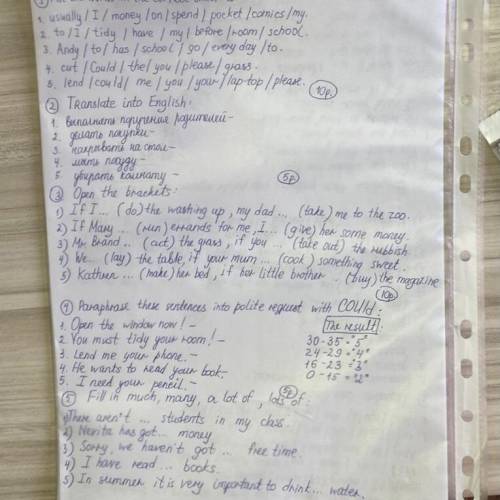 1. usually / I / money / on / spend / pocket / comics / my.
2. to / I / tidy / have / my / before / room / school.
3. Andy / to / has / school / go / every day / to.
4. cut / Could / the / you / please / grass.
5. lend / could / me / you / your / lap-top / please.
10p.
2 Translate into English:
1. выполнять поручения родителей-
2. делать покупки-
3. накрывать на стол-
4. мыть посуду-
5. убирать комнату-
5p.
3 Open the brackets:
1) If I... (do) the washing up, my dad... (take) me to the zoo.
2) If Mary... (run) errands for me, I... (give) her some money.
3) Mr Brand.. (cut) the grass, if you... (take out) the rubbish.
4) We... (lay) the table, if your mum... (cook) something sweet.
5) Kathree... (make) her bed, if her little brother.. (buy) the magazine
10p.
4 Paraphrase these sentences into polite request with COULD:
1. Open the window now! -
2. You must tidy your room! -
3. Lend me your phone. -
4. He wants to read your book.-
5. I need your pencil.-
The result:
30-35 = "5"
24-29 = "4"
16-23 = "3"
0-15 = "2"
5p.
5 Fill in much, many, a lot of, lots of:
1) There aren't ... students in my class.
2) Nikita has got... money
3) Sorry, we haven't got ... free time.
4) I have read... books.
5) In summer it is very important to drink... water.